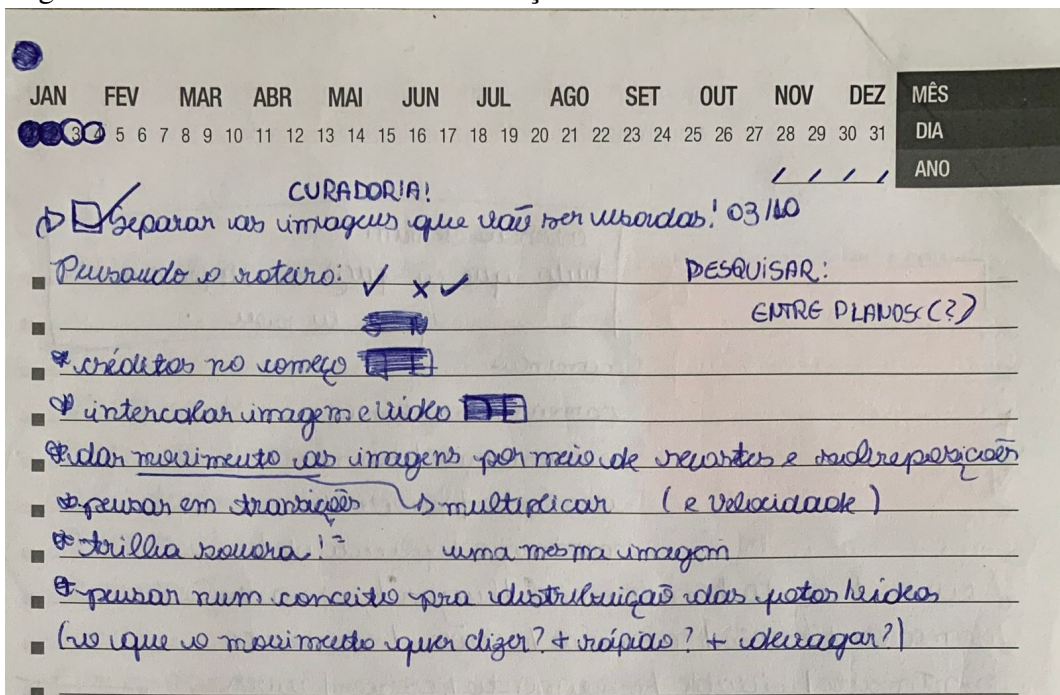 JAN FEV MAR ABR MAI JUN JUL AGO SET OUT NOV DEZ MÊS
3 4 5 6 7 8 9 10 11 12 13 14 15 16 17 18 19 20 21 22 23 24 25 26 27 28 29 30 31 DIA
ANO
CURADORIA!
Separar as imagens que vão ser usadas! 03/10
Pensando o roteiro: PESQUISAR:
ENTRE PLANOS (?)
* créditos no começo
* intercalar imagem e vídeo
* dar movimento as imagens por meio de recortes e sobreposições
* pensar em transições multiplicar (e velocidade)
* trilha sonora! uma mesma imagem
* pensar num conceito pra distribuição das fotos/vídeos
(o que o movimento quer dizer? + rápido? + devagar?)